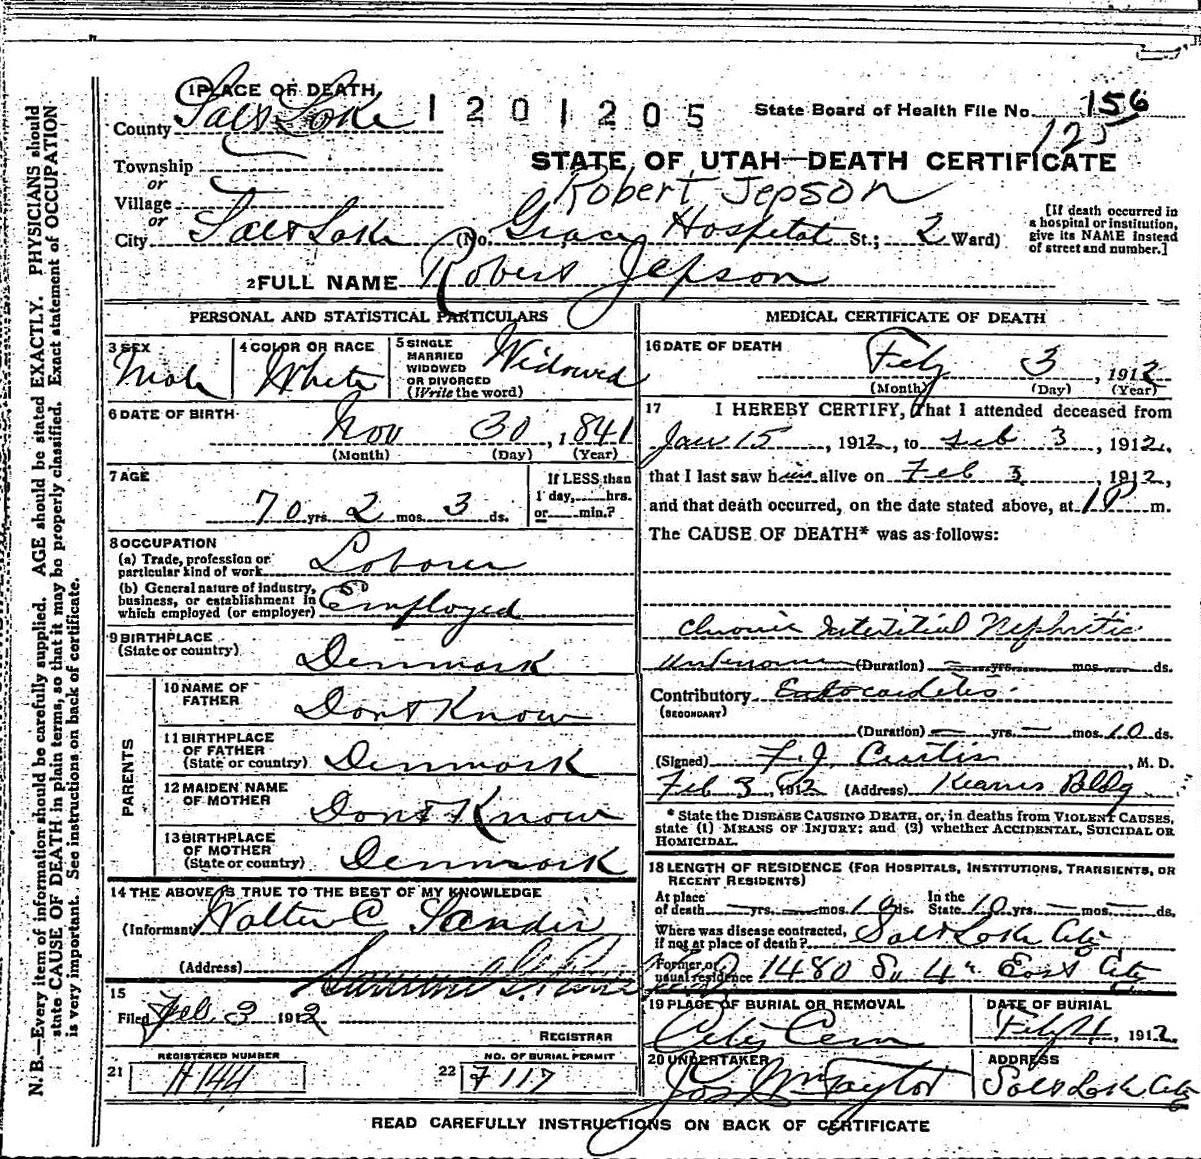 N. B.—Every item of information should be carefully supplied. AGE should be stated EXACTLY. PHYSICIANS should
state CAUSE OF DEATH in plain terms, so that it may be properly classified. Exact statement of OCCUPATION
is very important. See instructions on back of certificate.
1 PLACE OF DEATH
County Salt Lake
1201205
State Board of Health File No. 156
125
Township
or
Village
or
STATE OF UTAH—DEATH CERTIFICATE
Robert Jepson
City Salt Lake (No. Hospital St.; 2 Ward)
[If death occurred in
a hospital or institution,
give its NAME instead
of street and number.]
2 FULL NAME Robert Jepson
PERSONAL AND STATISTICAL PARTICULARS
3 SEX Male
4 COLOR OR RACE White
5 SINGLE
MARRIED
WIDOWED
OR DIVORCED
(Write the word)
Widowed
6 DATE OF BIRTH
Nov 30, 1841
(Month) (Day) (Year)
7 AGE
70 yrs. 2 mos. 3 ds.
If LESS than
1 day, hrs.
or min.?
8 OCCUPATION
(a) Trade, profession or
particular kind of work Laborer
(b) General nature of industry,
business, or establishment in
which employed (or employer) Employed
9 BIRTHPLACE
(State or country) Denmark
PARENTS
10 NAME OF
FATHER Dont Know
11 BIRTHPLACE
OF FATHER
(State or country) Denmark
12 MAIDEN NAME
OF MOTHER Dont Know
13 BIRTHPLACE
OF MOTHER
(State or country) Denmark
14 THE ABOVE IS TRUE TO THE BEST OF MY KNOWLEDGE
(Informant) Walter C
(Address)
15
Filed Feb. 3 1912
REGISTRAR
21 REGISTERED NUMBER
H 144
22 NO. OF BURIAL PERMIT
7117
MEDICAL CERTIFICATE OF DEATH
16 DATE OF DEATH
Feby 3, 1912
(Month) (Day) (Year)
17 I HEREBY CERTIFY, That I attended deceased from
Jan 15, 1912, to Feb 3, 1912,
that I last saw him alive on Feb 3, 1912,
and that death occurred, on the date stated above, at 1 P m.
The CAUSE OF DEATH* was as follows:
Chronic Interstitial Nephritis
unknown (Duration) — yrs. — mos. ds.
Contributory Endocarditis
(SECONDARY)
(Duration) — yrs. — mos. 10 ds.
(Signed) F. J. Curtis, M. D.
Feb 3, 1912 (Address) Kearns Bldg
* State the DISEASE CAUSING DEATH, or, in deaths from VIOLENT CAUSES,
state (1) MEANS OF INJURY; and (2) whether ACCIDENTAL, SUICIDAL OR
HOMICIDAL.
18 LENGTH OF RESIDENCE (FOR HOSPITALS, INSTITUTIONS, TRANSIENTS, OR
RECENT RESIDENTS)
At place
of death — yrs. — mos. 19 ds.
In the
State 10 yrs. — mos. — ds.
Where was disease contracted,
if not at place of death? Salt Lake City
Former or
usual residence 1480 So 4" East City
19 PLACE OF BURIAL OR REMOVAL
City Cem
DATE OF BURIAL
Feby 4, 1912
20 UNDERTAKER
Jos Wm Taylor
ADDRESS
Salt Lake City
READ CAREFULLY INSTRUCTIONS ON BACK OF CERTIFICATE